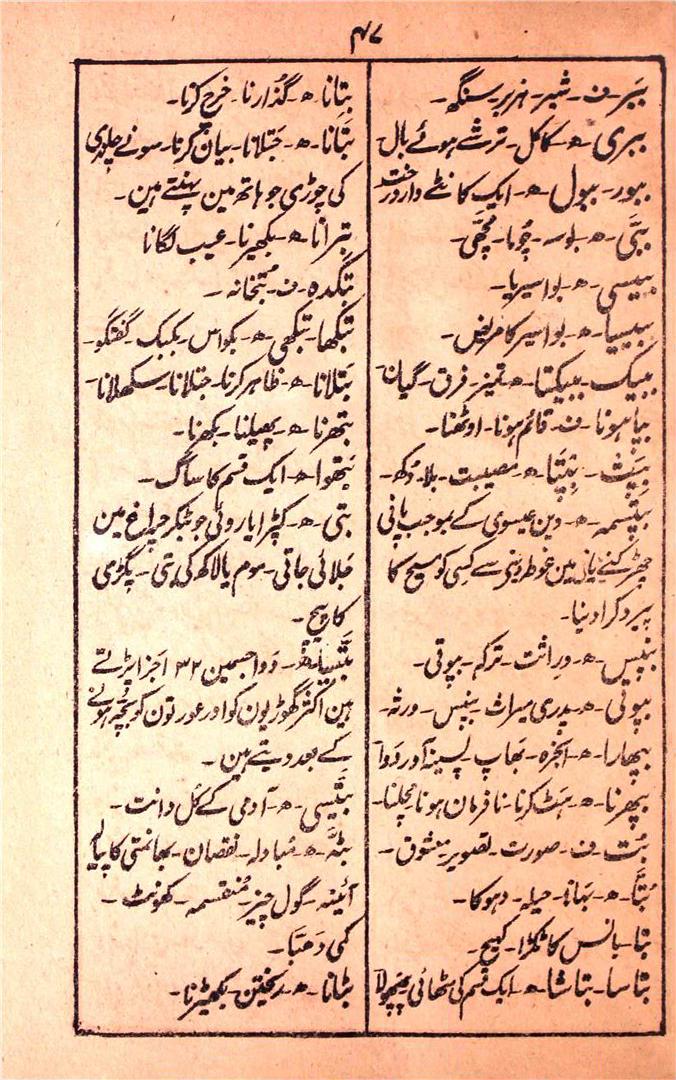 ۴۷
ببر۔ ف۔ شبر۔ ہزبر۔ سنگھ۔
ببری۔ ھ۔ کاکل۔ ترشے ہوئے بال
ببور۔ ببول۔ ھ۔ ایک کانٹے دار درخت
ببّی۔ ھ۔ بوسہ۔ چُوما۔ مُچھّی۔
ببیسی۔ ھ۔ بواسیریا۔
ببیسیا۔ ھ۔ بواسیر کا مریض۔
ببیک۔ ببیکتا۔ ھ۔ تمیز۔ فرق۔ گیان۔
بپا ہونا۔ ف۔ قائم ہونا۔ اوٹھنا۔
بِپَت۔ بِپتا۔ ھ۔ مصیبت۔ بلا۔ دُکھ۔
بپتسمہ۔ ھ۔ دین عیسوی کے بموجب پانی
چھڑکنے یا پانی مین غوطہ دینے سے کسی کو مسیح کا
پیرو کرا دینا۔
بپنس۔ ھ۔ وراثت۔ ترکہ۔ بپوتی۔
بپوتی۔ ھ۔ پدری میراث۔ بپنس۔ ورثہ۔
بپھارا۔ ھ۔ ابخرہ۔ بھاپ۔ پسینہ آور دوا
بپھرنا۔ ھ۔ ہٹ کرنا۔ نافرمان ہونا۔ مچلنا۔
بُت۔ ف۔ صورت۔ تصویر۔ معشوق۔
بُتّا۔ ھ۔ بہانا۔ حیلہ۔ دہوکا۔
بتا۔ بانس کا ٹکڑا۔ کھپچ۔
بتاسا۔ بتاشا۔ ھ۔ ایک قسم کی مٹھائی۔ پھپھولا
بِتانا۔ ھ۔ گذارنا۔ خرچ کرنا۔
بَتانا۔ ھ۔ جَتلانا۔ بیان کرنا۔ سونے چاندی
کی چوڑی جو ہاتھ مین پہنتے ہین۔
بترانا۔ ھ۔ بکھیرنا۔ عیب لگانا
بتکدہ۔ ف۔ بُتخانہ۔
بتکھا۔ بتکھی۔ ھ۔ بکواس۔ بکبک۔ گفتگو۔
بَتلانا۔ ھ۔ ظاہر کرنا۔ جتلانا۔ سکھلانا۔
بتھرنا۔ ھ۔ پھیلنا۔ بکھرنا۔
بَتھوا۔ ھ۔ ایک قسم کا ساگ۔
بتی۔ ھ۔ کپڑا یا روئی جو بٹکر چراغ مین
جَلائی جاتی۔ موم یا لاکھ کی بتی۔ پگڑی
کا پیچ۔
بَتّیسا۔ ھ۔ دوا جسمین ۳۲ اجزا پڑتے
ہین اکثر گھوڑیون کو اور عورتون کو بچہ ہونے
کے بعد دیتے ہین۔
بتّیسی۔ ھ۔ آدمی کے کُل دانت۔
بٹّہ۔ ھ۔ مُبادلہ۔ نقصان۔ بھانمتی کا پیالہ
آئینہ۔ گول چیز۔ مُنقسمہ۔ کھونٹ۔
کمی دَھبّا۔
بٹانا۔ ھ۔ ریختن۔ بکھیڑنا۔